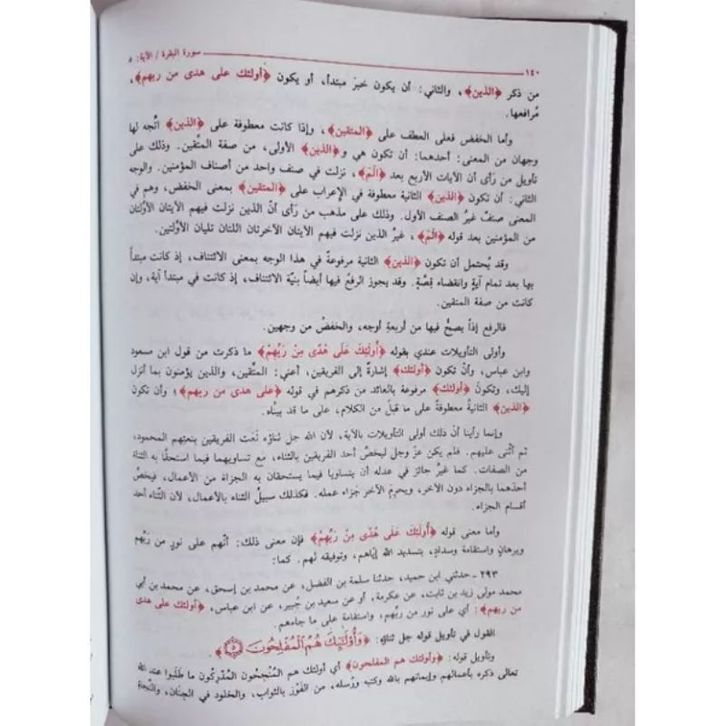 ١٤٠ سورة البقرة / الآية: ٥
من ذكر ﴿الذين﴾، والثاني: أن يكون خبرَ مبتدأ، أو يكون ﴿أولئك على هدى من ربهم﴾،
مُرافعها.
وأما الخفض فعلى العطف على ﴿المتقين﴾، وإذا كانت معطوفة على ﴿الذين﴾ اتَّجه لها
وجهان من المعنى: أحدهما: أن تكون هي و﴿الذين﴾ الأولى، من صفة المتَّقين. وذلك على
تأويل من رَأى أن الآيات الأربع بعد ﴿الم﴾، نزلت في صنف واحد من أصناف المؤمنين. والوجه
الثاني: أن تكون ﴿الذين﴾ الثانية معطوفة في الإعراب على ﴿المتقين﴾ بمعنى الخفض، وهم في
المعنى صنفٌ غيرُ الصنف الأول. وذلك على مذهب من رَأى أنّ الذين نزلت فيهم الآيتان الأوّلتان
من المؤمنين بعد قوله ﴿الم﴾، غيرُ الذين نزلت فيهم الآيتان الآخرتان اللتان تليان الأوّلتين.
وقد يُحتمل أن تكون ﴿الذين﴾ الثانية مرفوعةً في هذا الوجه بمعنى الائتناف، إذ كانت مبتدأ
بها بعد تمام آيةٍ وانقضاء قِصَّة. وقد يجوز الرفعُ فيها أيضاً بنيّة الائتناف، إذ كانت في مبتدأ آية، وإن
كانت من صفة المتقين.
فالرفع إذاً يصحُّ فيها من أربعةِ أوجه، والخفضُ من وجهين.
وأولى التأويلات عندي بقوله ﴿أُولَٰئِكَ عَلَى هُدًى مِنْ رَبِّهِمْ﴾ ما ذكرت من قول ابن مسعود
وابن عباس، وأنْ تكون ﴿أولئك﴾ إشارةً إلى الفريقين، أعني: المتَّقين، والذين يؤمنون بما أنزل
إليك، وتكونُ ﴿أولئك﴾ مرفوعة بالعائد من ذكرهم في قوله ﴿على هدى من ربهم﴾؛ وأن تكون
﴿الذين﴾ الثانيةُ معطوفةً على ما قبلُ من الكلام، على ما قد بينَّاه.
وإنما رأينا أنّ ذلك أولى التأويلات بالآية، لأن الله جل ثناؤه نَعَت الفريقين بنعتهم المحمود،
ثم أثْنى عليهم. فلم يكن عزّ وجل ليخصَّ أحد الفريقين بالثناء، مع تساويهما فيما استحقَّا به الثناء
من الصفات. كما غيرُ جائز في عدله أن يتساويا فيما يستحقان به الجزاءَ من الأعمال، فيخصُّ
أحدهما بالجزاء دون الآخر، ويحرمُ الآخر جَزاء عمله. فكذلك سبيلُ الثناء بالأعمال، لأن الثناء أحد
أقسام الجزاء.
وأما معنى قوله ﴿أُولَٰئِكَ عَلَى هُدًى مِنْ رَبِّهِمْ﴾ فإن معنى ذلك: أنّهم على نورٍ من رَبِّهم
وبرهانٍ واستقامة وسدادٍ، بتسديد الله إيّاهم، وتوفيقه لهم. كما:
٢٩٣ - حدثني ابن حميد، حدثنا سلمة بن الفضل، عن محمد بن إسحق، عن محمد بن أبي
محمد مولى زيد بن ثابت، عن عكرمة، أو عن سعيد بن جُبير، عن ابن عباس، ﴿أولئك على هدى
من ربهم﴾: أي على نور من ربِّهم، واستقامة على ما جاءهم.
القول في تأويل قوله جل ثناؤه: ﴿وَأُولَٰئِكَ هُمُ الْمُفْلِحُونَ ٥﴾
وتأويل قوله: ﴿وأولئك هم المفلحون﴾ أي أولئك هم المُنْجِحُون المُدْرِكُون ما طَلَبوا عند الله
تعالى ذكره بأعمالهم وإيمانهم بالله وكتبه ورُسله، من الفَوْز بالثواب، والخلود في الجِنَان، والنَّجاة